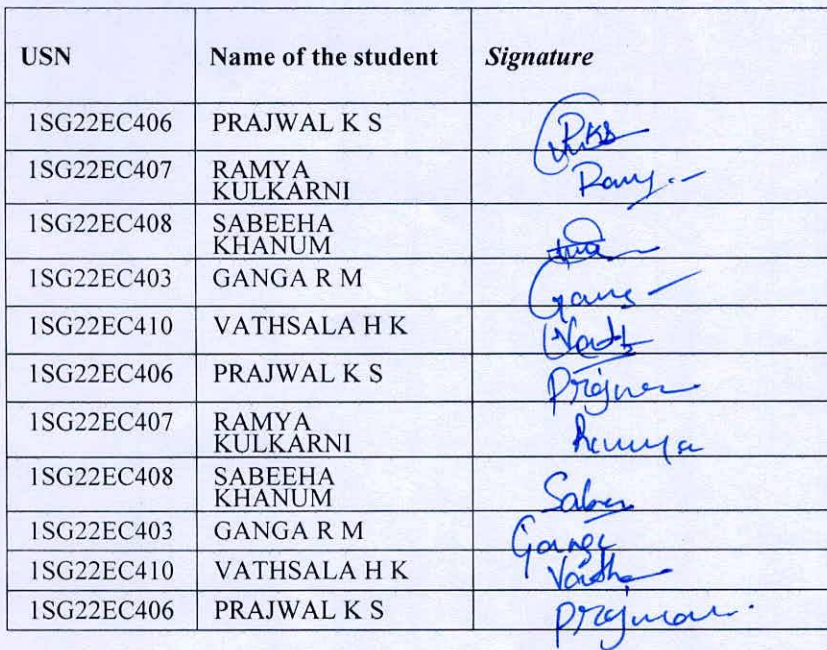 USN Name of the student Signature
1SG22EC406 PRAJWAL K S PKS
1SG22EC407 RAMYA
KULKARNI Ramy
1SG22EC408 SABEEHA
KHANUM
1SG22EC403 GANGA R M Gang
1SG22EC410 VATHSALA H K
1SG22EC406 PRAJWAL K S
1SG22EC407 RAMYA
KULKARNI Ramya
1SG22EC408 SABEEHA
KHANUM
1SG22EC403 GANGA R M
1SG22EC410 VATHSALA H K
1SG22EC406 PRAJWAL K S